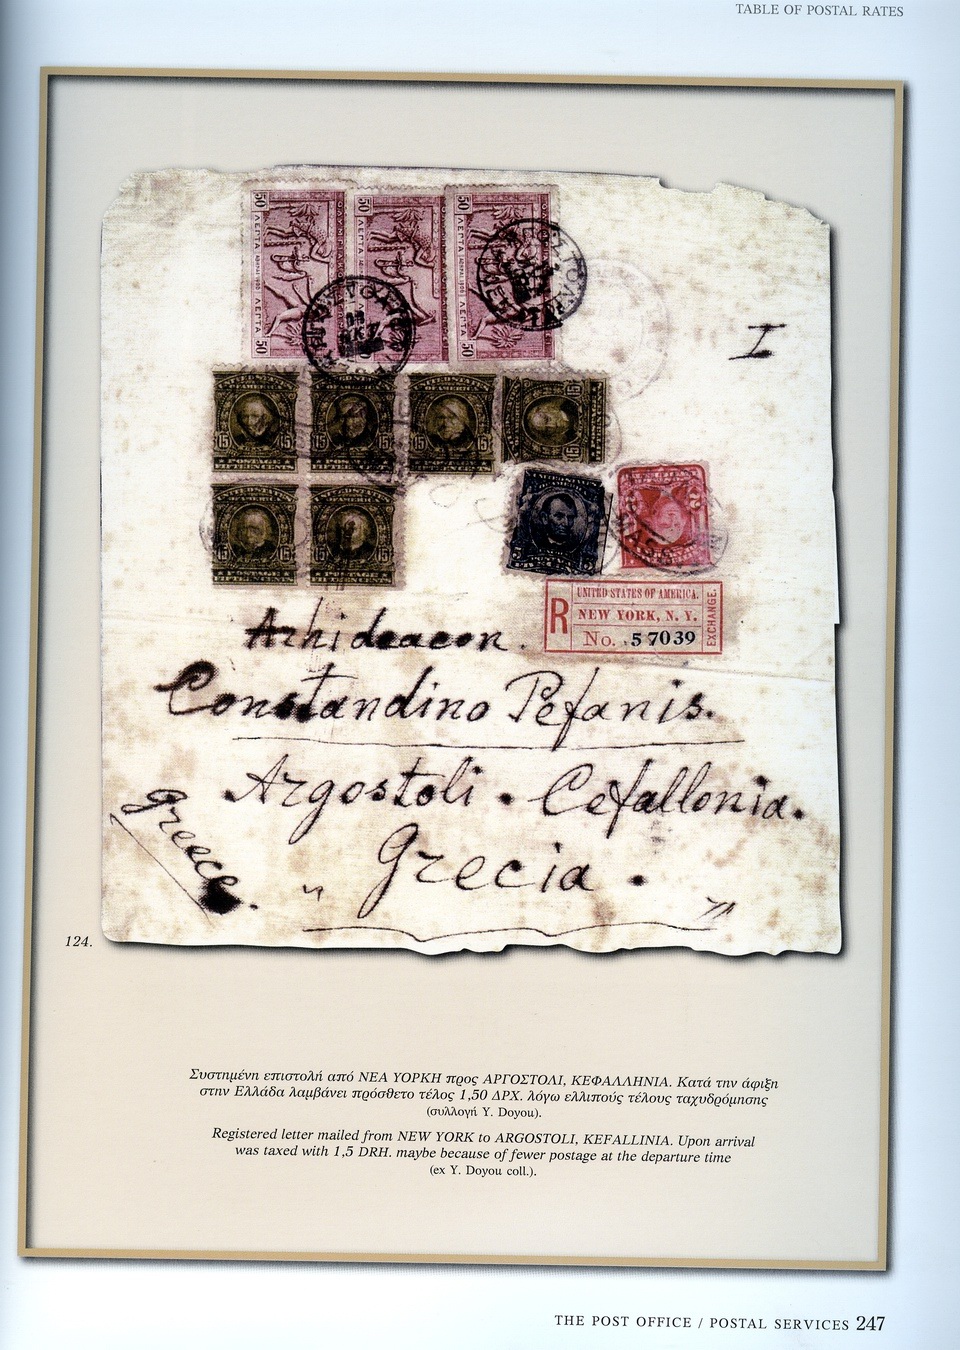 TABLE OF POSTAL RATES
50 ΛΕΠΤΑ 50 ΛΕΠΤΑ
50 ΛΕΠΤΑ
50 ΛΕΠΤΑ 50
I
15 15
15 15
15 15
15
15 15
15 15
5
2
R
UNITED STATES OF AMERICA.
NEW YORK, N. Y.
No. 57039
EXCHANGE.
Arhideacon.
Constandino Pefanis.
Argostoli. Cefallonia.
Greece.
" Grecia. "
124.
Συστημένη επιστολή από ΝΕΑ ΥΟΡΚΗ προς ΑΡΓΟΣΤΟΛΙ, ΚΕΦΑΛΛΗΝΙΑ. Κατά την άφιξη
στην Ελλάδα λαμβάνει πρόσθετο τέλος 1,50 ΔΡΧ. λόγω ελλιπούς τέλους ταχυδρόμησης
(συλλογή Y. Doyou).
Registered letter mailed from NEW YORK to ARGOSTOLI, KEFALLINIA. Upon arrival
was taxed with 1,5 DRH. maybe because of fewer postage at the departure time
(ex Y. Doyou coll.).
THE POST OFFICE / POSTAL SERVICES 247